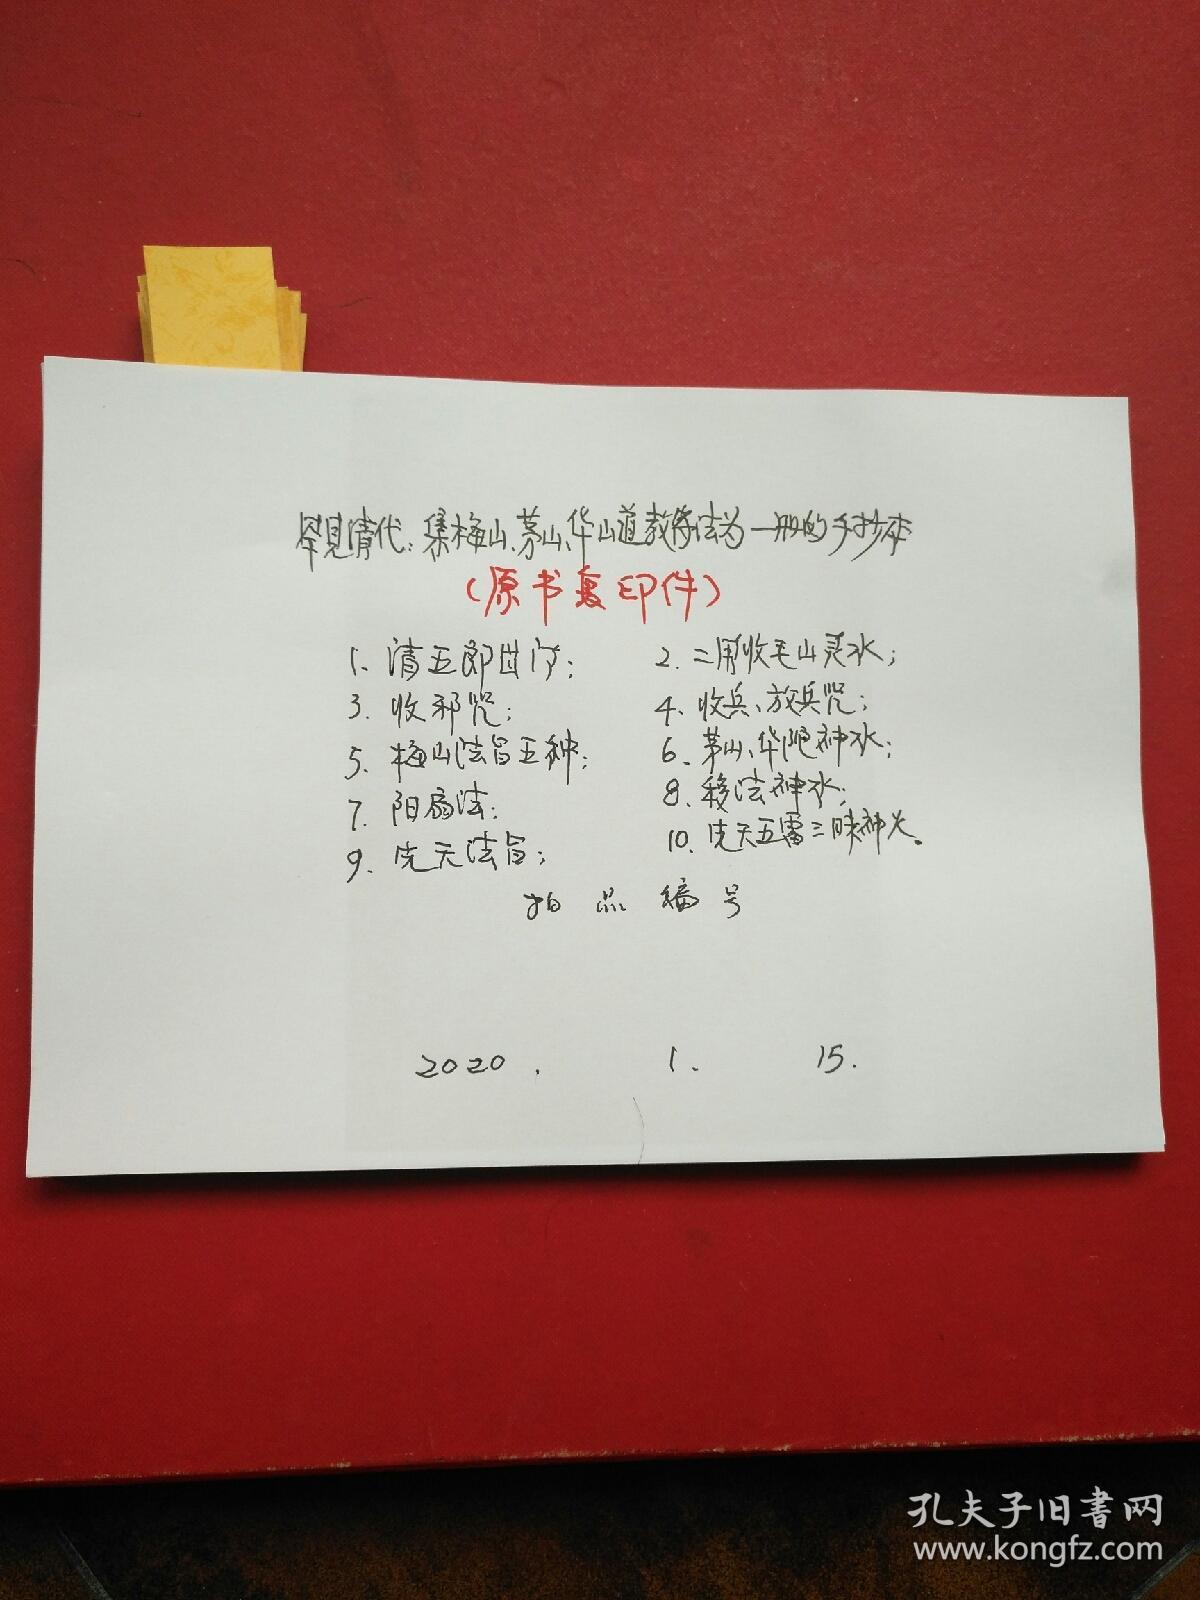 罕见清代:集梅山、茅山、华山道教符法为一册的手抄本
(原书复印件)
1. 清五郎出门;
2. 二用收毛山灵水;
3. 收邪咒;
4. 收兵、放兵咒;
5. 梅山法旨五种;
6. 茅山、华陀神水;
7. 阳扇法;
8. 移法神水;
9. 先天法旨;
10. 先天五雷三昧神火。
拍品编号
2020. 1. 15.
孔夫子旧書网
www.kongfz.com